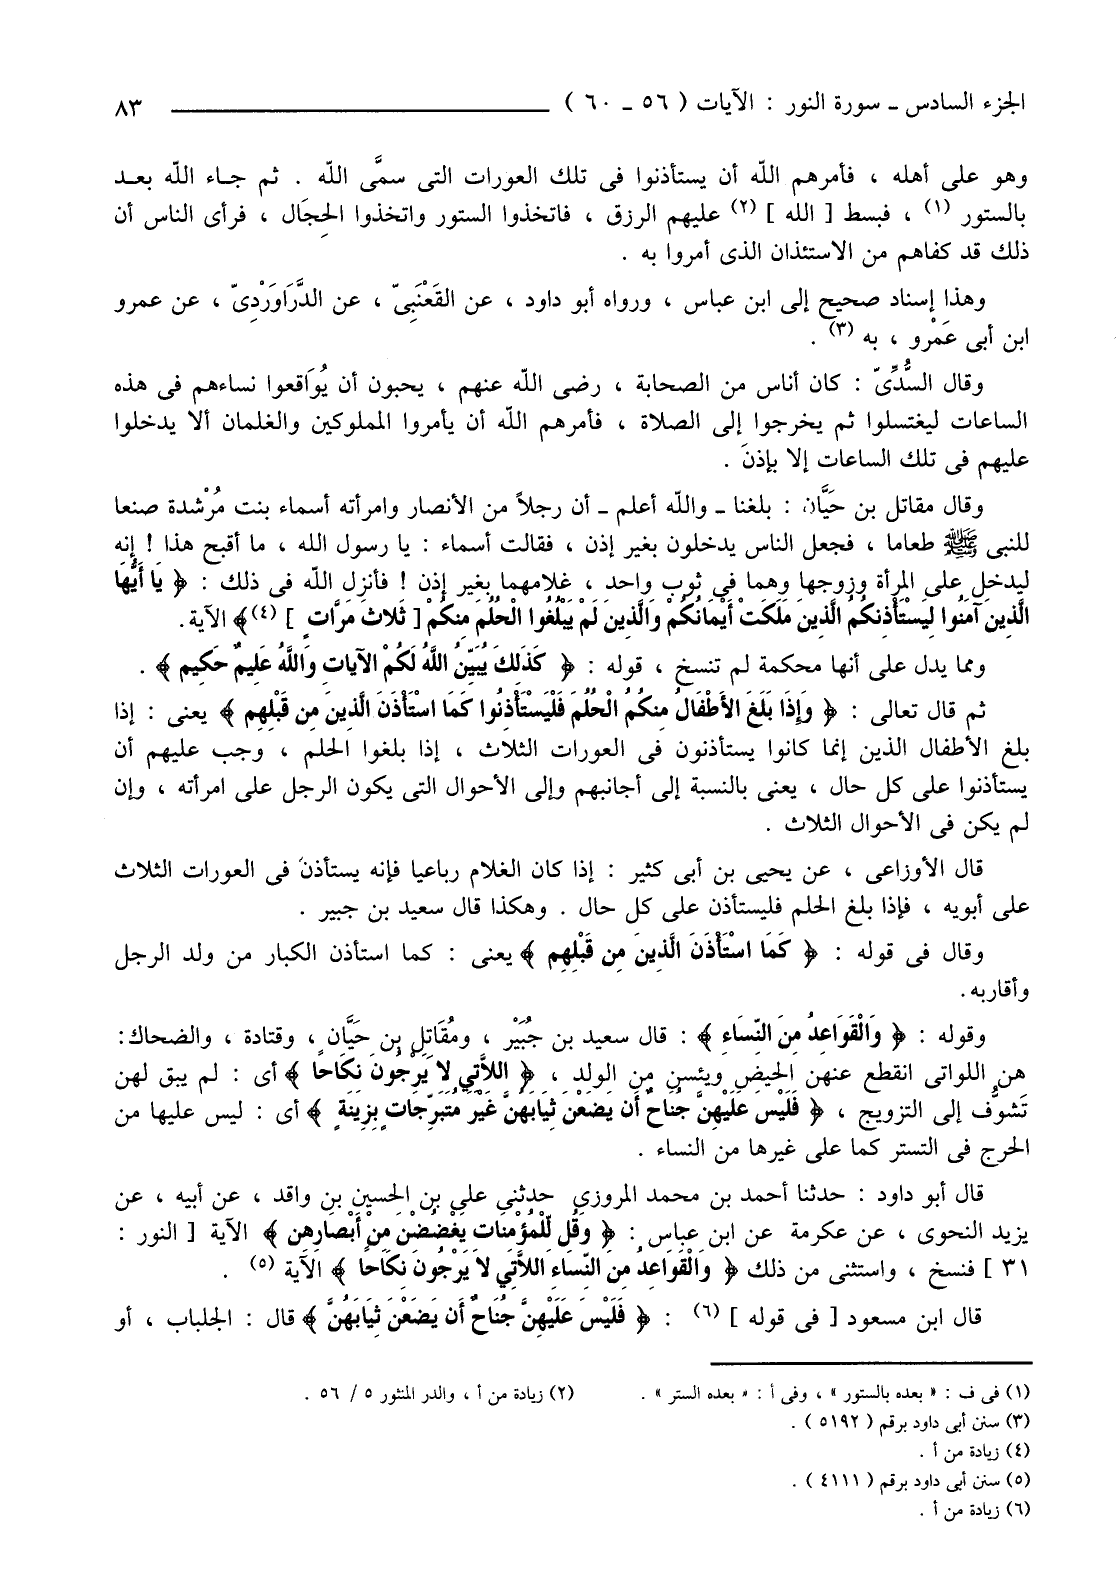 الجزء السادس ـ سورة النور : الآيات ( ٥٦ ـ ٦٠ ) ٨٣
وهو على أهله ، فأمرهم اللّه أن يستأذنوا فى تلك العورات التى سمَّى اللّه . ثم جـاء اللّه بعـد
بالستور (١) ، فبسط [ الله ] (٢) عليهم الرزق ، فاتخذوا الستور واتخذوا الحِجَال ، فرأى الناس أن
ذلك قد كفاهم من الاستئذان الذى أمروا به .
وهذا إسناد صحيح إلى ابن عباس ، ورواه أبو داود ، عن القَعْنَبىّ ، عن الدَّرَاوَرْدِىّ ، عن عمرو
ابن أبى عَمْرو ، به (٣) .
وقال السُّدِّىّ : كان أناس من الصحابة ، رضى اللّه عنهم ، يحبون أن يُوَاقعوا نساءهم فى هذه
الساعات ليغتسلوا ثم يخرجوا إلى الصلاة ، فأمرهم اللّه أن يأمروا المملوكين والغلمان ألا يدخلوا
عليهم فى تلك الساعات إلا بإذن .
وقال مقاتل بن حَيَّان : بلغنا ـ واللّه أعلم ـ أن رجلاً من الأنصار وامرأته أسماء بنت مُرْشدة صنعا
للنبى ﷺ طعاما ، فجعل الناس يدخلون بغير إذن ، فقالت أسماء : يا رسول الله ، ما أقبح هذا ! إنه
ليدخل على المرأة وزوجها وهما فى ثوب واحد ، غلامهما بغير إذن ! فأنزل اللّه فى ذلك : ﴿ يَا أَيُّهَا
الَّذِينَ آمَنُوا لِيَسْتَأْذِنكُمُ الَّذِينَ مَلَكَتْ أَيْمَانُكُمْ وَالَّذِينَ لَمْ يَبْلُغُوا الْحُلُمَ مِنكُمْ [ ثَلاثَ مَرَّاتٍ ] (٤)﴾ الآية.
ومما يدل على أنها محكمة لم تنسخ ، قوله : ﴿ كَذَلِكَ يُبَيِّنُ اللَّهُ لَكُمُ الآيَاتِ وَاللَّهُ عَلِيمٌ حَكِيم ﴾ .
ثم قال تعالى : ﴿ وَإِذَا بَلَغَ الأَطْفَالُ مِنكُمُ الْحُلُمَ فَلْيَسْتَأْذِنُوا كَمَا اسْتَأْذَنَ الَّذِينَ مِن قَبْلِهِم ﴾ يعنى : إذا
بلغ الأطفال الذين إنما كانوا يستأذنون فى العورات الثلاث ، إذا بلغوا الحلم ، وجب عليهم أن
يستأذنوا على كل حال ، يعنى بالنسبة إلى أجانبهم وإلى الأحوال التى يكون الرجل على امرأته ، وإن
لم يكن فى الأحوال الثلاث .
قال الأوزاعى ، عن يحيى بن أبى كثير : إذا كان الغلام رباعيا فإنه يستأذن فى العورات الثلاث
على أبويه ، فإذا بلغ الحلم فليستأذن على كل حال . وهكذا قال سعيد بن جبير .
وقال فى قوله : ﴿ كَمَا اسْتَأْذَنَ الَّذِينَ مِن قَبْلِهِم ﴾ يعنى : كما استأذن الكبار من ولد الرجل
وأقاربه.
وقوله : ﴿ وَالْقَوَاعِدُ مِنَ النِّسَاءِ ﴾ : قال سعيد بن جُبَيْر ، ومُقَاتل بن حَيَّان ، وقتادة ، والضحاك:
هن اللواتى انقطع عنهن الحيض ويئسن من الولد ، ﴿ اللاَّتِي لا يَرْجُونَ نِكَاحًا ﴾ أى : لم يبق لهن
تَشوُّف إلى التزويج ، ﴿ فَلَيْسَ عَلَيْهِنَّ جُنَاحٌ أَن يَضَعْنَ ثِيَابَهُنَّ غَيْرَ مُتَبَرِّجَاتٍ بِزِينَةٍ ﴾ أى : ليس عليها من
الحرج فى التستر كما على غيرها من النساء .
قال أبو داود : حدثنا أحمد بن محمد المروزي حدثني على بن الحسين بن واقد ، عن أبيه ، عن
يزيد النحوى ، عن عكرمة عن ابن عباس : ﴿ وَقُل لِّلْمُؤْمِنَاتِ يَغْضُضْنَ مِنْ أَبْصَارِهِن ﴾ الآية [ النور :
٣١ ] فنسخ ، واستثنى من ذلك ﴿ وَالْقَوَاعِدُ مِنَ النِّسَاءِ اللاَّتِي لاَ يَرْجُونَ نِكَاحًا ﴾ الآية (٥) .
قال ابن مسعود [ فى قوله ] (٦) : ﴿ فَلَيْسَ عَلَيْهِنَّ جُنَاحٌ أَن يَضَعْنَ ثِيَابَهُنَّ ﴾ قال : الجلباب ، أو
(١) فى ف : « بعده بالستور » ، وفى أ : « بعده الستر » . (٢) زيادة من أ ، والدر المنثور ٥ / ٥٦ .
(٣) سنن أبى داود برقم ( ٥١٩٢ ) .
(٤) زيادة من أ .
(٥) سنن أبى داود برقم ( ٤١١١ ) .
(٦) زيادة من أ .